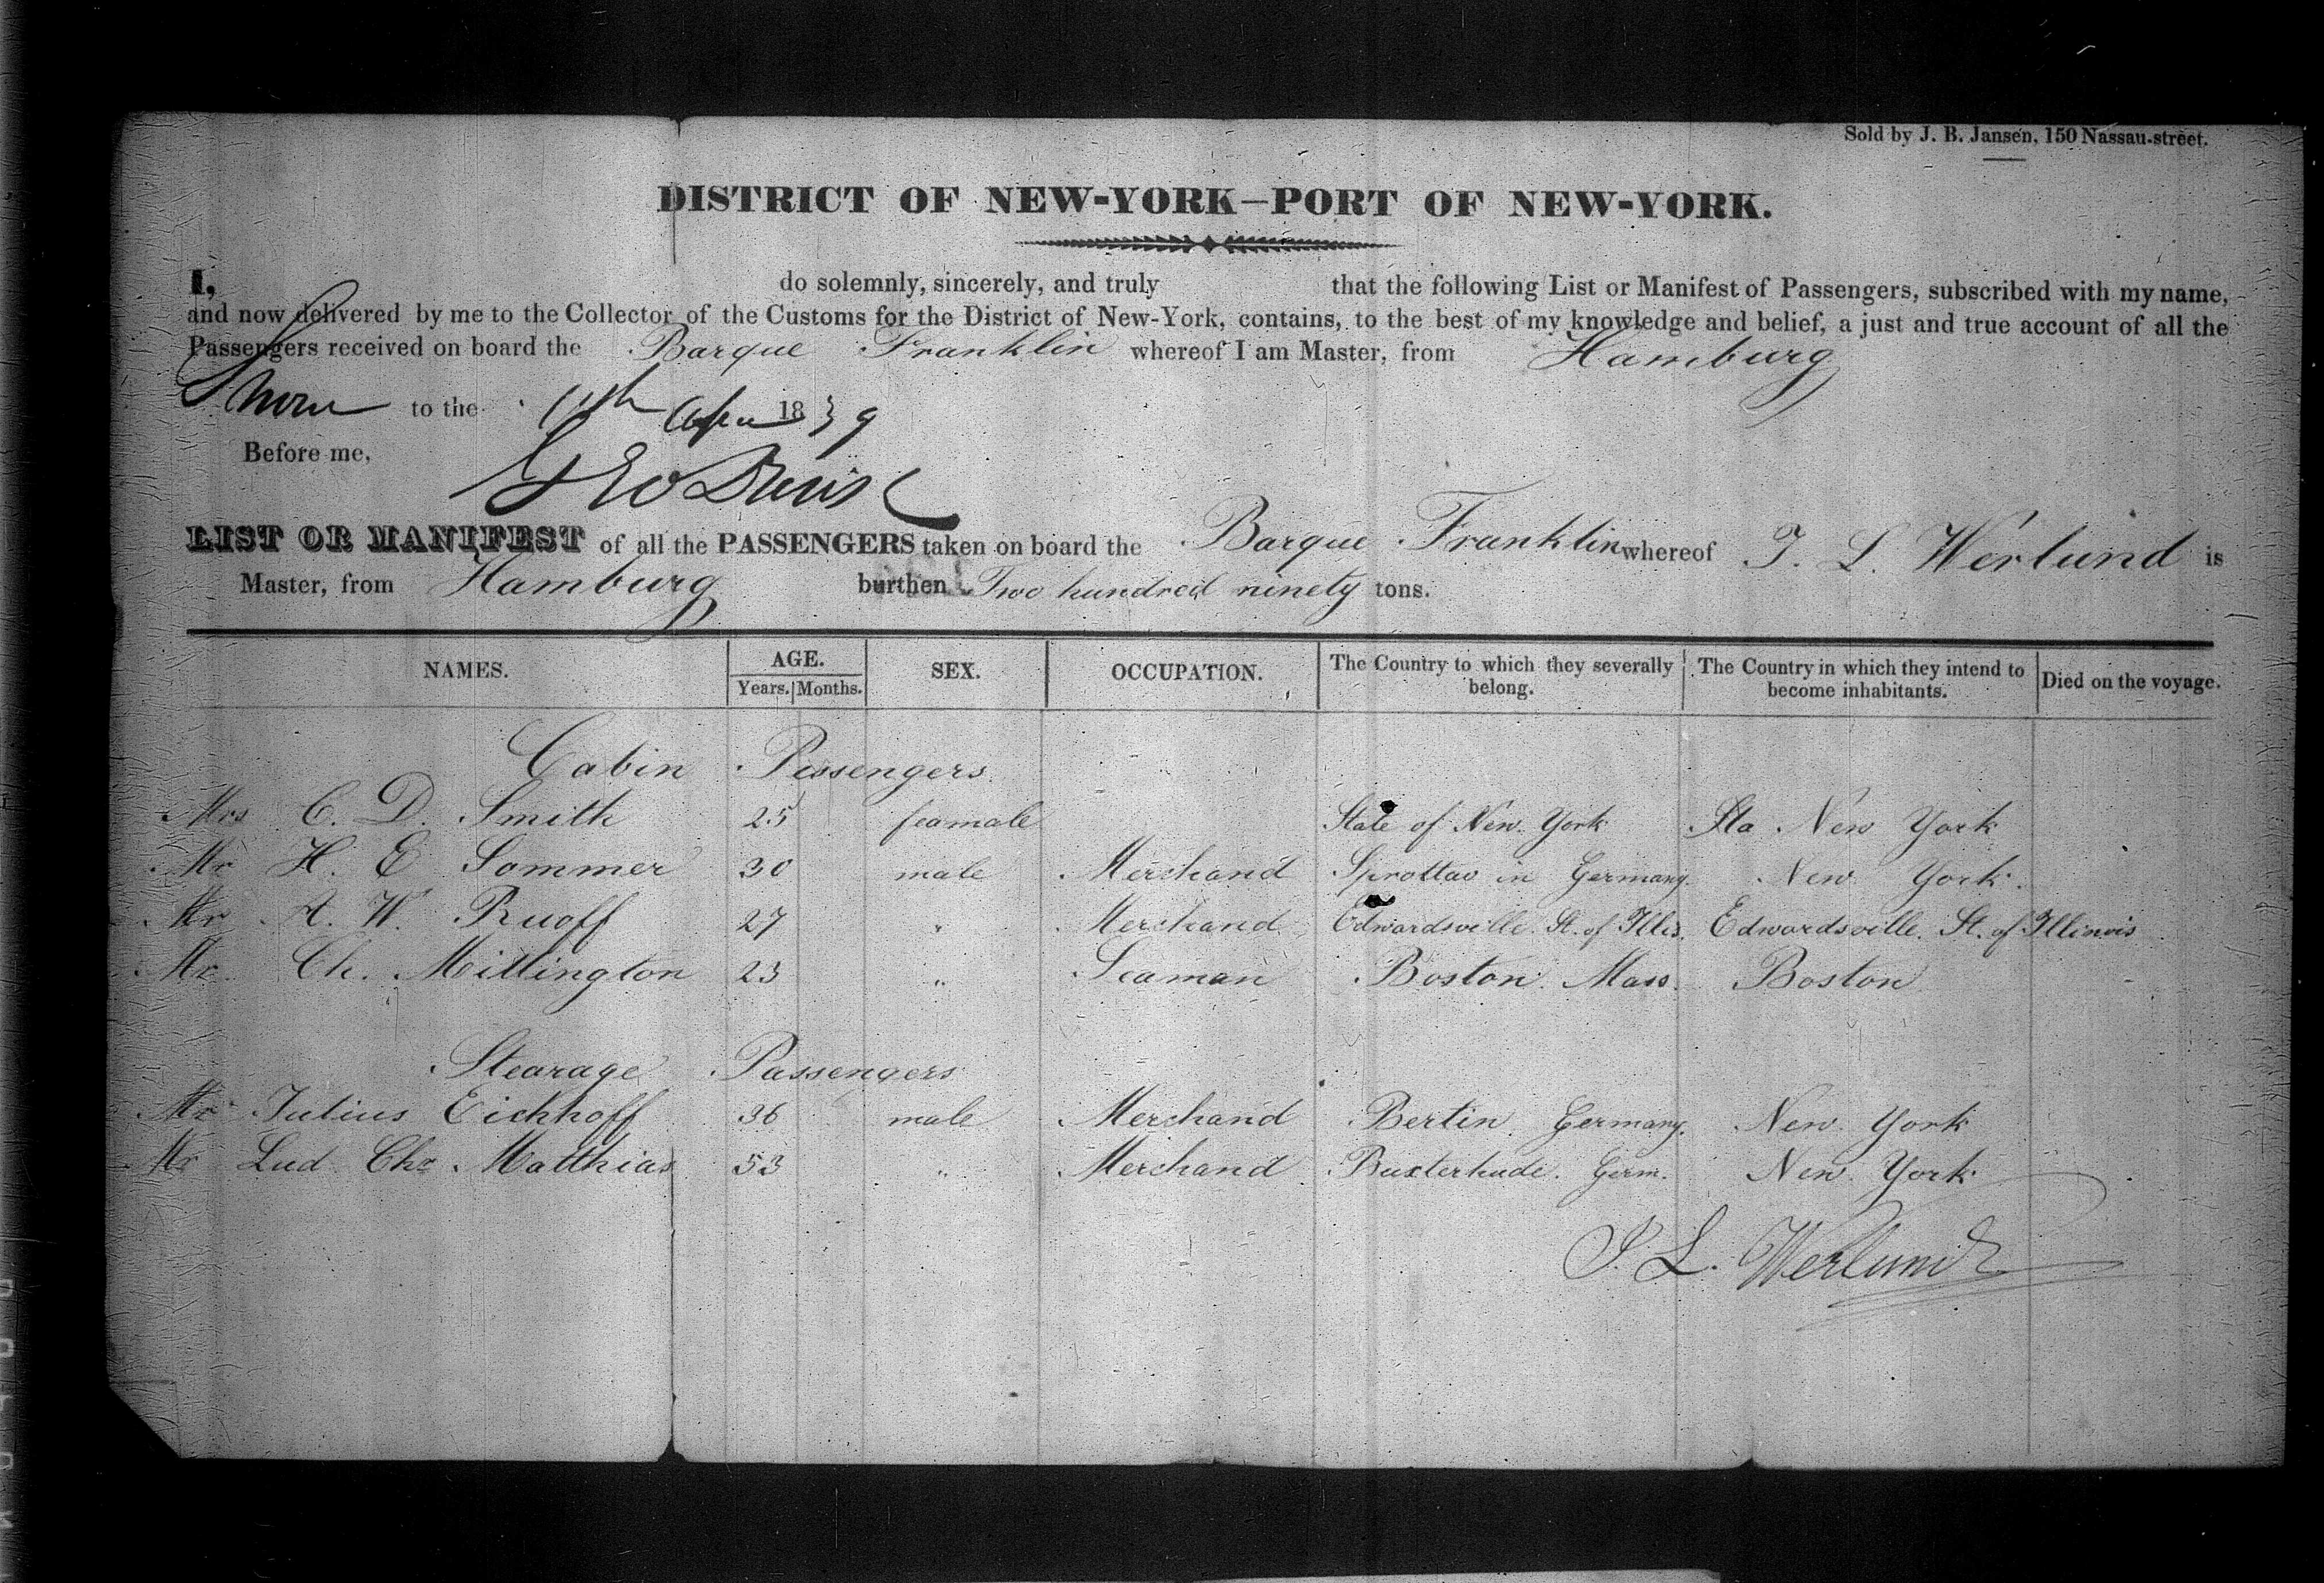 Sold by J. B. Jansen, 150 Nassau-street.
DISTRICT OF NEW-YORK—PORT OF NEW-YORK.
I, do solemnly, sincerely, and truly that the following List or Manifest of Passengers, subscribed with my name,
and now delivered by me to the Collector of the Customs for the District of New-York, contains, to the best of my knowledge and belief, a just and true account of all the
Passengers received on board the Barque Franklin whereof I am Master, from Hamburg
Sworn to the 11th 1839
Before me,
Geo
LIST OR MANIFEST of all the PASSENGERS taken on board the Barque Franklin whereof J. L. Werlund is
Master, from Hamburg burthen Two hundred ninety tons.
NAMES. AGE. SEX. OCCUPATION. The Country to which they severally belong. The Country in which they intend to become inhabitants. Died on the voyage.
Years. Months.
Cabin Passengers
Mrs C. D. Smith 25 feamale State of New York Sta New York
Mr H. E Sommer 30 male Merchand Sprottau in Germany. New York.
Mr A. W. Ruoff 27 " Merchand Edwardsville. St. of Illis. Edwardsville. St. of Illinois
Mr. Ch. Millington 23 " Seaman Boston. Mass. Boston
Stearage Passengers
Mr Julius Eichhoff 36 male Merchand Berlin Germany. New York
Mr Lud. Chr. Matthias 53 " Merchand Buxtehude. Germ. New York
J. L. Werlund